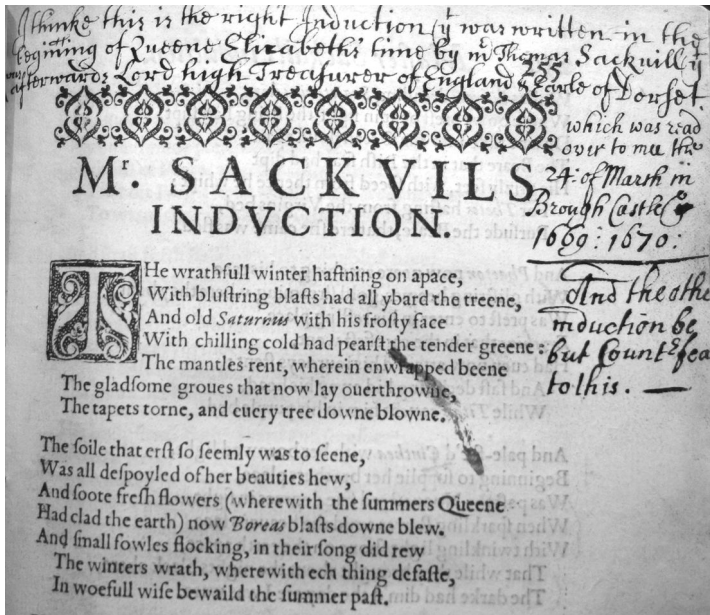 I thinke this is the right Induction yt was written in the
begining of Queene Elizabeths time by mr Thomas Sackvill yt
was afterwards Lord high Treasurer of England & Earle of Dorset.
255
which was read
over to mee the
24: of Marsh in
Brough Castle
1669: 1670:
And the othe
induction be
but Countrfea
to this. —
Mr. SACKVILS
INDVCTION.
THe wrathfull winter haſtning on apace,
With bluſtring blaſts had all ybard the treene,
And old Saturnus with his froſty face
With chilling cold had pearſt the tender greene:
The mantles rent, wherein enwrapped beene
The gladſome groues that now lay ouerthrowne,
The tapets torne, and euery tree downe blowne.
The ſoile that erſt ſo ſeemly was to ſeene,
Was all deſpoyled of her beauties hew,
And ſoote freſh flowers (wherewith the ſummers Queene
Had clad the earth) now Boreas blaſts downe blew.
And ſmall fowles flocking, in their ſong did rew
The winters wrath, wherewith ech thing defaſte,
In woefull wiſe bewaild the ſummer paſt.